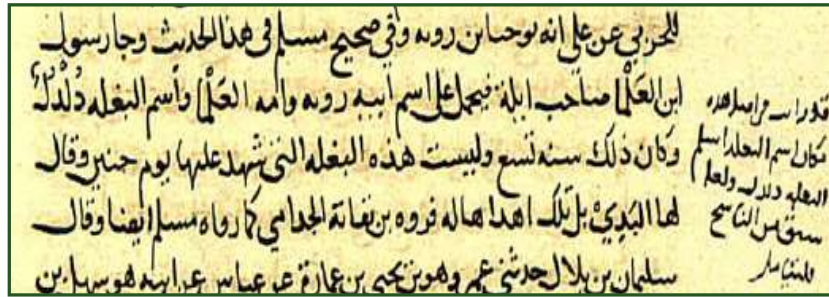 للحربي عن علي انه يوحنا بن روبه وفي صحيح مسلم في هذا الحديث وجا رسول
ابن العَلْما صاحب ايلة فيحمل على اسم ابيه روبه وامه العَلْما وأسم البغله دُلْدُلْ
وكان ذلك سنه تسع وليست هذه البغله التي شهد عليها يوم حنين وقال
لها البَدِيْ بل تلك اهداها له فروه بن نفاثة الجذامي كما رواه مسلم ايضا وقال
سليمان بن بلال حدثني عمرو بن يحيى بن عمارة عن عباس عن ابيه هو سهل بن
مكان اسم البغله اسلم
البغله دلدل ولعله
سبق من الناسخ